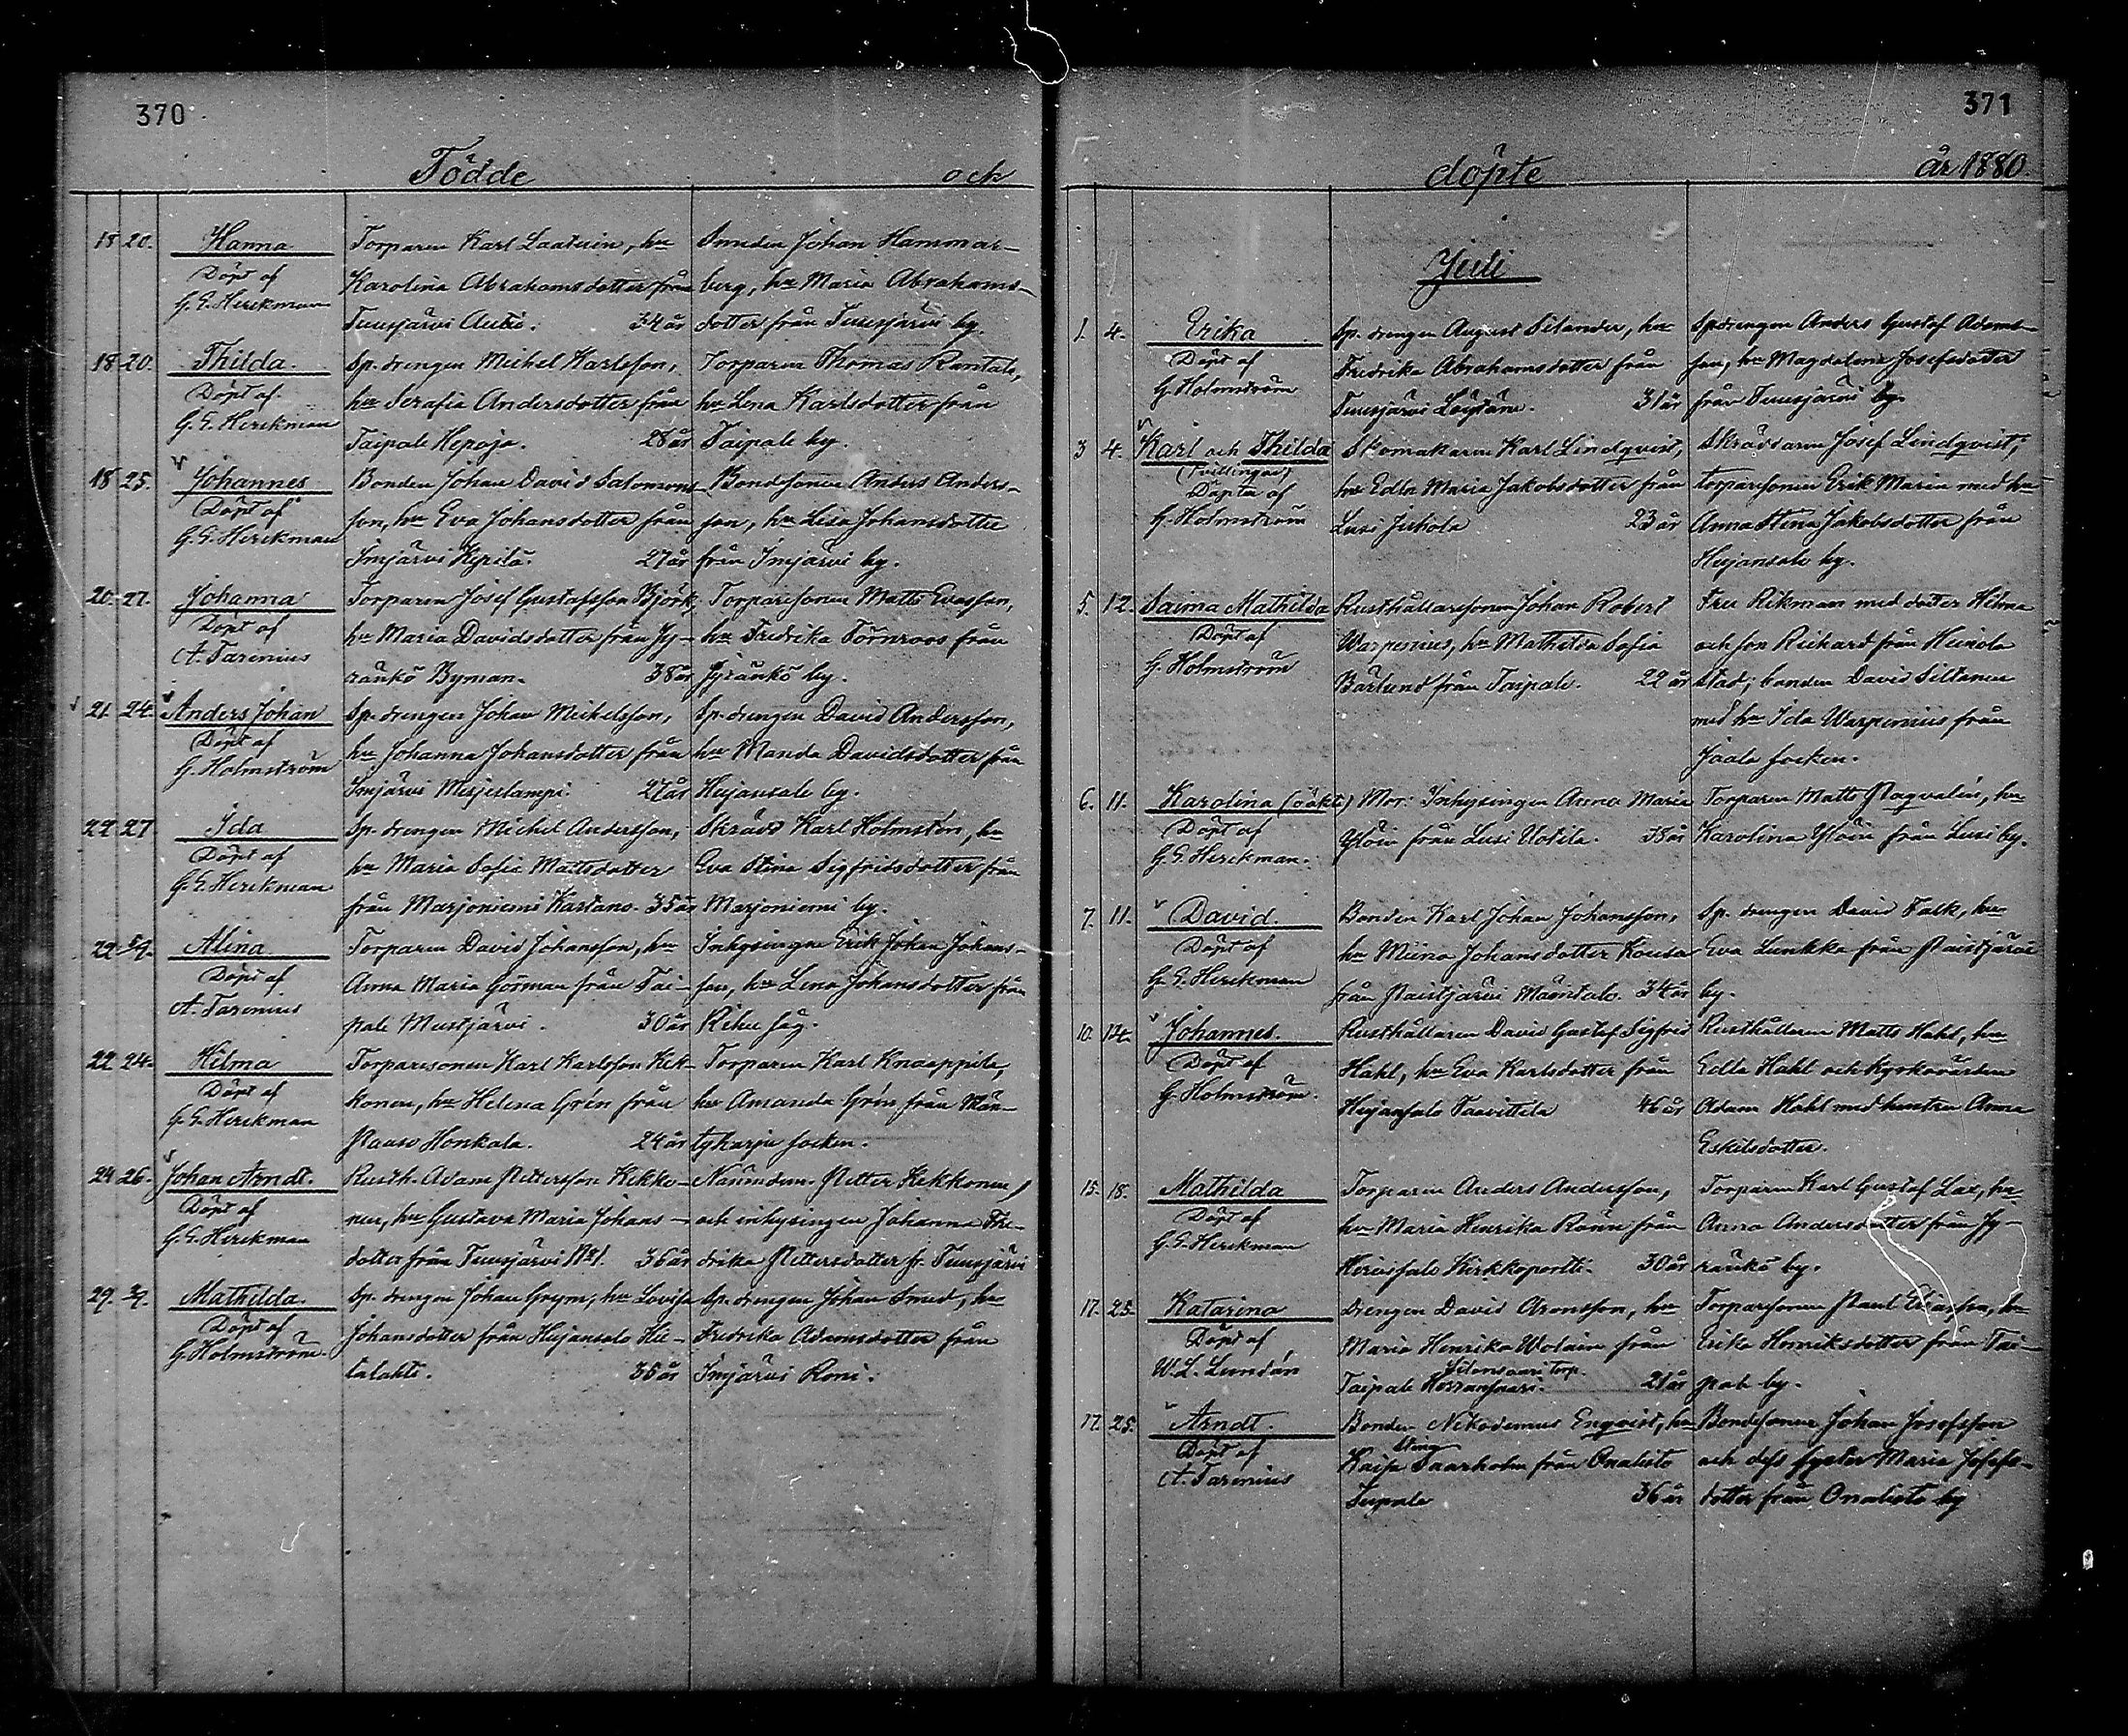 370
Födde och
18 20. Hanna Torparen Karl Laaturin, hu Smeden Johan Hammar-
Döpt af Karolina Abrahamsdotter från berg, hu Maria Abrahams-
G. E. Herckman Tuusjärvi Autio. 34 år dotter från Tuusjärvi by.
18 20. Thilda. Sp. drengen Michel Karlsson, Torparen Thomas Rantala,
Döpt af hu Serafia Andersdotter från hu Lena Karlsdotter från
G. E. Herckman Taipale Hepoja. 28 år Taipale by.
18 25. Johannes Bonden Johan David Salomons- Bondsonen Anders Anders-
Döpt af son, hu Eva Johansdotter från son, hu Lisa Johansdotter
G. E. Herckman Imjärvi 27 år från Imjärvi by.
20. 27. Johanna Torparen Josef Gustafsson Björk, Torparesonen Matts Evasson,
Döpt af hu Maria Davidsdotter från Jy- hu Fredrika Törnroos från
A. Tarenius ränkö Byman. 38 år Jyränkö by.
21. 24. Anders Johan Sp. drengen Johan Michelsson, Sp. drengen David Andersson,
Döpt af hu Johanna Johansdotter från hu Manda Davidsdotter från
G. Holmström Imjärvi 27 år Hujansalo by.
22 27 Ida Sp. drengen Michel Andersson, Skrädd Karl Holmstén, hu
Döpt af hu Maria Sofia Mattsdotter Eva Stina Sigfridsdotter från
G. E. Herckman från Marjoniemi Kartano. 35 år Marjoniemi by.
22. Alina Torparen David Johansson, hu Inhysingen Erik Johan Johans-
Döpt af Anna Maria Görman från Tai- son, hu Lena Johansdotter från
A. Tarenius pale Mustjärvi. 30 år
22 24. Hilma Torparesonen Karl Karlsson Kek- Torparen Karl Knaappila,
Döpt af konen, hu Helena Grén från hu Amanda Grén från Män-
G. E. Herckman Paaso Honkala. 24 år tyharju socken.
24 26. Johan Arndt. Rusth. Adam Pettersson Kekko- Nämndem. Petter Kekkonen,
Döpt af nen, hu Gustava Maria Johans- och inhysingen Johanna Fre-
G. E. Herckman dotter från Tuusjärvi No 1. 36 år drika Pettersdotter fr. Tuusjärvi
29. Mathilda. Sp. drengen Johan Grym, hu Lovisa Sp. drengen Johan Smed, hu
Döpt af Johansdotter från Hujansalo Hie- Fredrika Adamsdotter från
G. Holmström talahti. 35 år Imjärvi Roni.
371
döpte år 1880.
Juli
1. 4. Erika Sp. drengen August Silander, hu Sp. drengen Anders Gustaf Adams-
Döpt af Fredrika Abrahamsdotter från son, hu Magdalena Josefsdotter
G. Holmström Tuusjärvi Löytäne. 31 år från Tuusjärvi by.
3 4. Karl och Thilda Skomakaren Karl Lindqvist, Skräddaren Josef Lindqvist,
(Tvillingar)
Döpta af hu Edla Maria Jakobsdotter från torparesonen Erik Marin med hu
G. Holmström Lusi Juhola 23 år Anna Stina Jakobsdotter från
Hujansalo by.
5. 12. Saima Mathilda Rusthållarsonen Johan Robert Fru Rikman med dotter Hilma
Döpt af Warpenius, hu Mathilda Sofia och son Rickard från Heinola
G. Holmström Bärlund från Taipale. 22 år stad; bonden David Siltanen
med hu Ida Warpenius från
Jaala socken.
6. 11. Karolina (oäkta) Mor: Inhysingen Anna Maria Torparen Matts Pagvalin, hu
Döpt af Ylöin från Lusi Uotila. 38 år Karolina Ylöin från Lusi by.
G. E. Herckman.
7. 11. David. Bonden Karl Johan Johansson, Sp. drengen David Falk, hu
Döpt af hu Miina Johansdotter Kousa Eva Lunkka från Paistjärvi
G. E. Herckman från Paistjärvi Mäntalo. 34 år by.
10. 12. Johannes. Rusthållaren David Gustaf Sigfrid Rusthållaren Matts Hahl, hu
Döpt af Hahl, hu Eva Karlsdotter från Edla Hahl och kyrkovärden
G. Holmström. Hujansalo Taavittila 46 år Adam Hahl med hustru Anna
Eskilsdotter.
15. 18. Mathilda Torparen Anders Andersson, Torparen Karl Gustaf Lax, hu
Döpt af hu Maria Henrika Rönn från Anna Andersdotter från Jy-
G. E. Herckman Hevossalo Kirkkoportti. 30 år ränkö by.
17. 25. Katarina drengen David Aronsson, hu Torparesonen Paul Eliasson, hu
Döpt af Maria Henrika Wolain från Erika Henriksdotter från Tai-
W. L. Lundán torp.
Taipale 21 år pale by.
17. 25. Arndt. Bonden Nikodemus Enqvist, hu Bondesonen Johan Josefsson
Döpt af Stina
Kaisa Saarholm från Onalisto och dess syster Maria Josefs-
A. Tarenius Seppälä 36 år dotter från Onalisto by